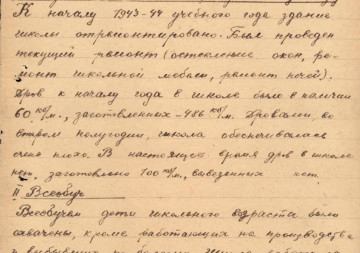 К началу 1943-44 учебного года здание
школы отремонтировано. Был проведен
текущий ремонт (остекление окон, ре-
монт школьной мебели, ремонт печей).
Дров к началу года в школе было в наличии
60 куб/м., заготовленных - 486 куб/м. Дровами, во
втором полугодии, школа обеспечивалась
очень плохо. В настоящее время дров в школе
нет, заготовлено 100 куб/м., вывезенных нет.
II Всеобуч
Всеобучем дети школьного возраста были
охвачены, кроме работающих на производстве